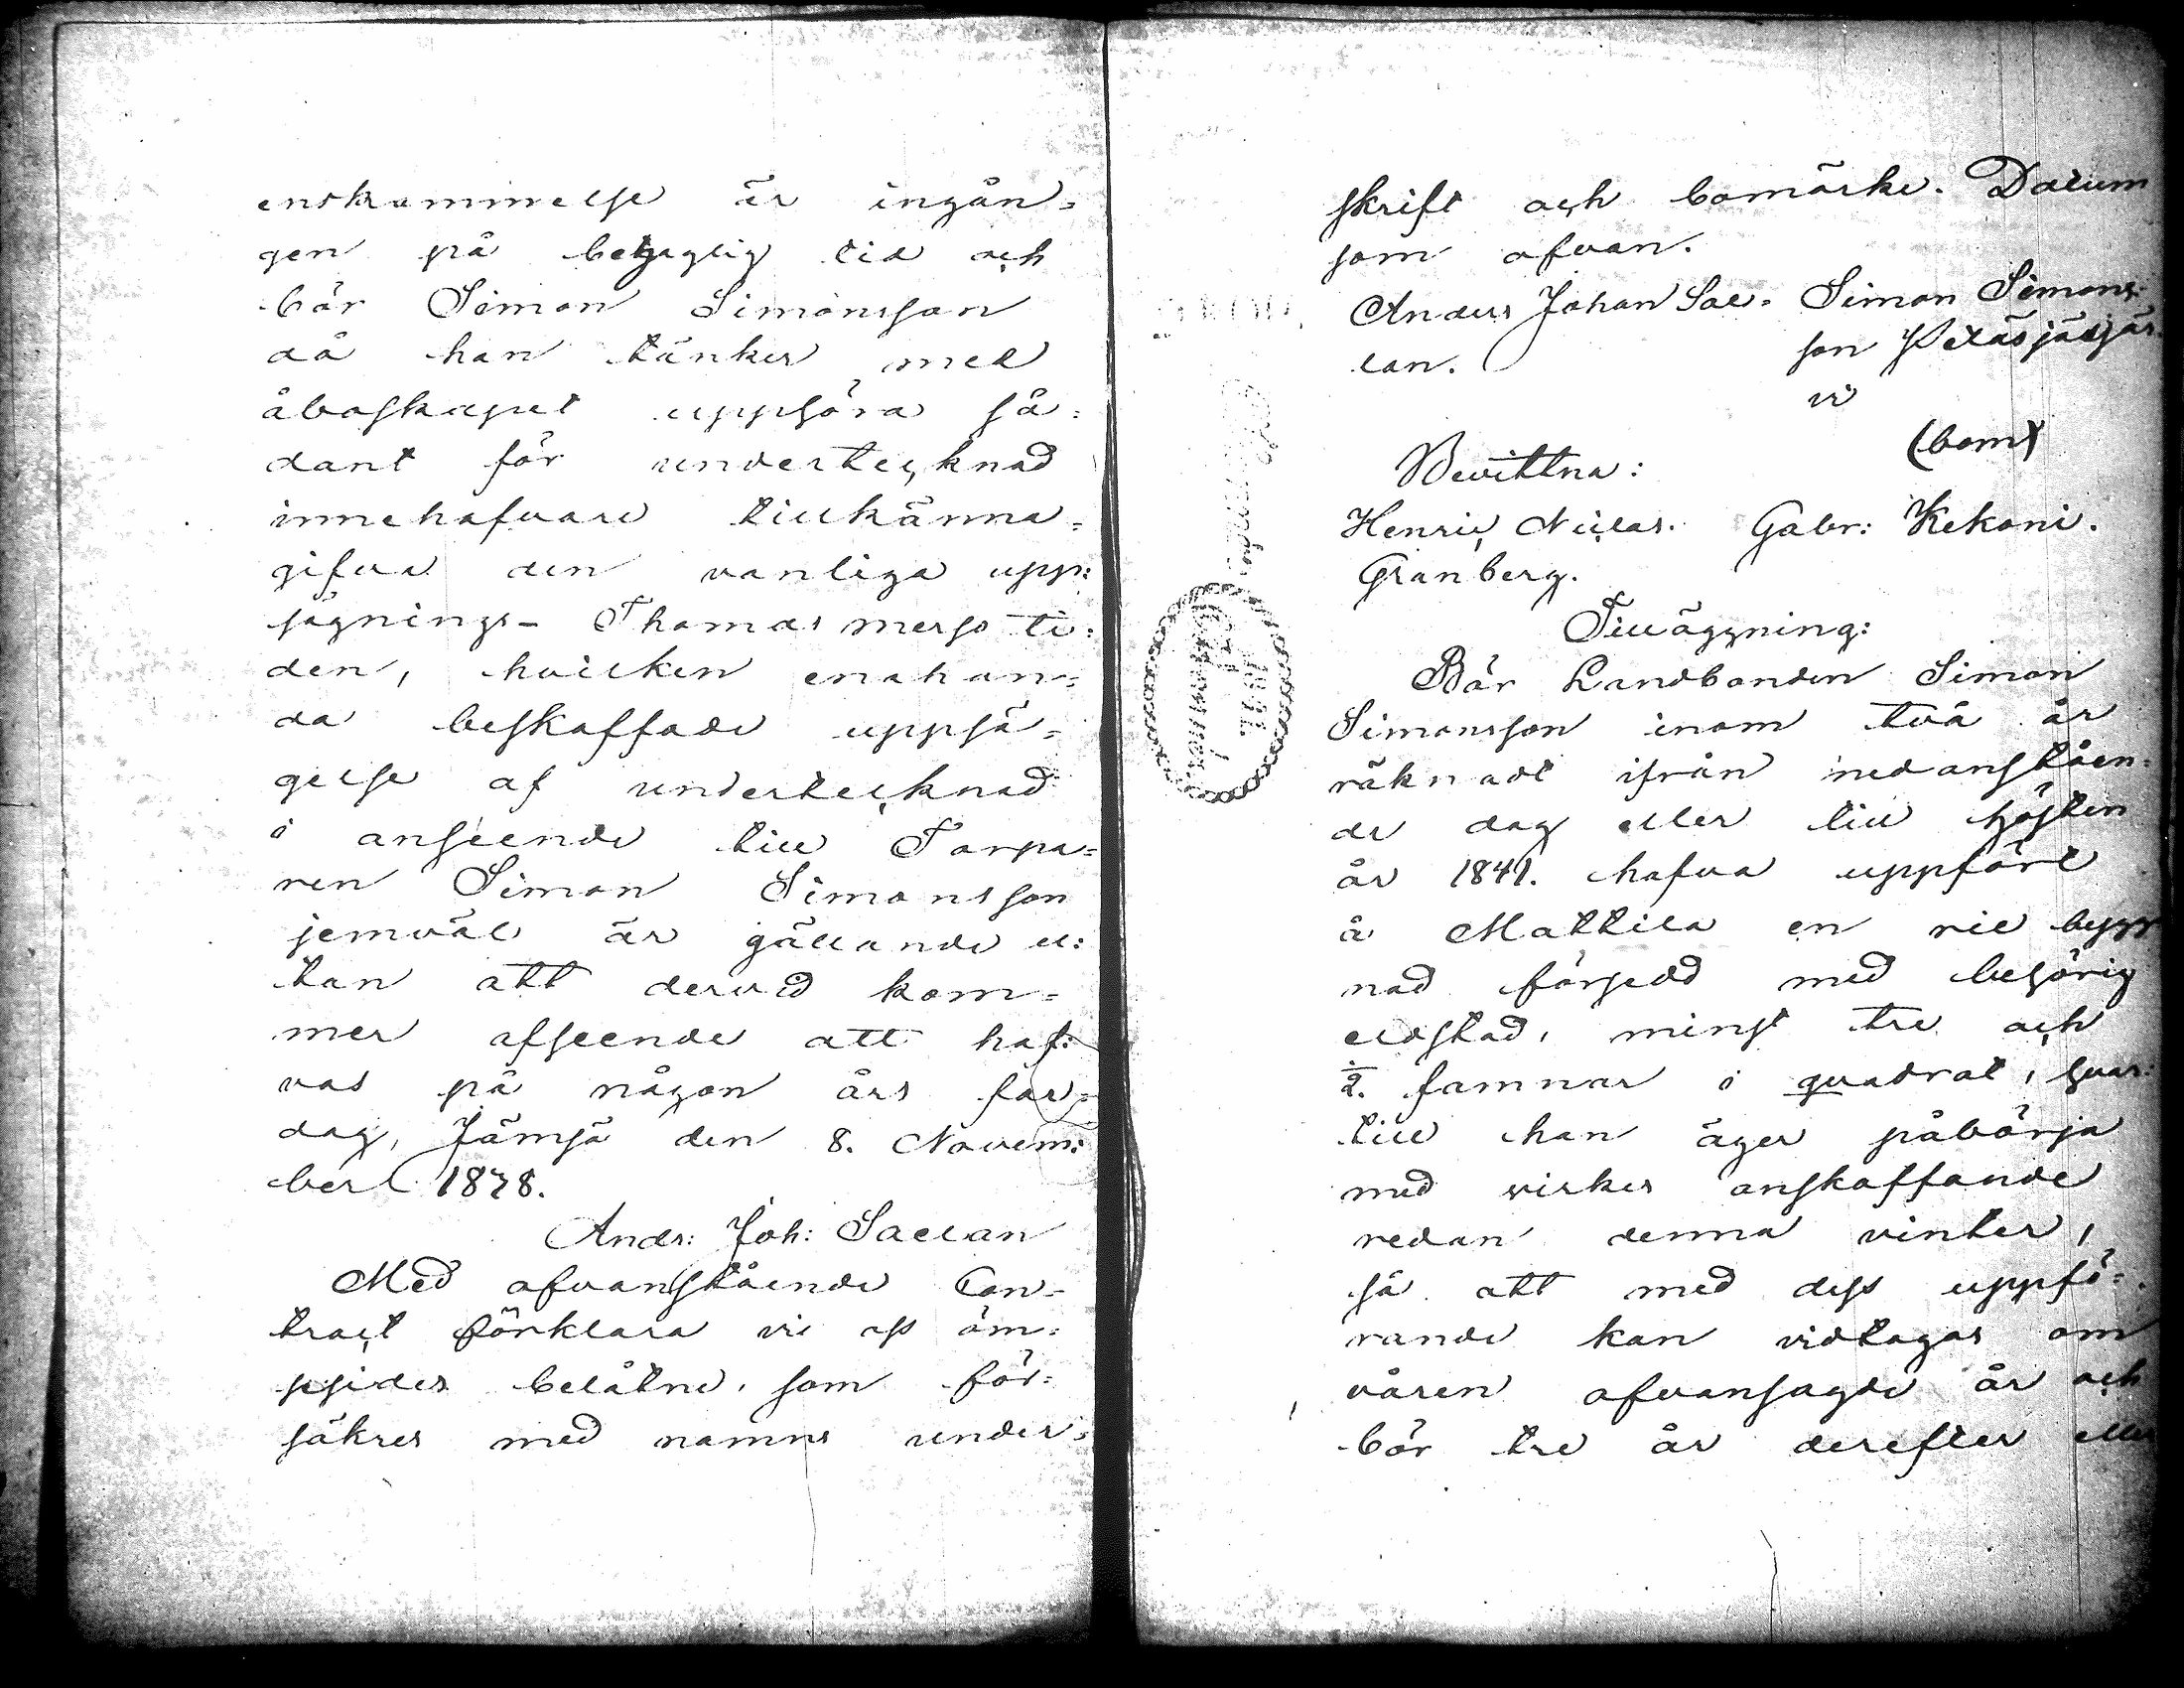 enskommelse är ingån-
gen på behaglig tid och
bör Simon Simonsson
då han tänker med
åboskapet upphöra så-
dant för undertecknad
innehafvare tillkänna-
gifva den vanliga upp-
sägnings- Thomæ messo ti-
den, hvilken enahan-
da beskaffade uppsä-
gelse af undertecknad
i anseende till Torpa-
ren Simon Simonsson
jemväl är gällande u-
tan att dervid kom-
mer afseende att haf-
vas på någon års far-
dag, Jämsä den 8. Novem-
ber 1838.
Andr: Joh: Saelan
Med ofvanstående Con-
tract förklara vi oss öm-
psides belåtne, som för-
säkres med namns under-
skrift och bomärke. Datum
som ofvan.
Anders Johan Sae- Simon Simons-
lan. son Petäsjäsjär-
vi
(bom)
Bevittna:
Henric Niclas. Gabr: Kekoni.
Granberg.
Tilläggning:
Bör Landbonden Simon
Simonsson inom två år
räknadt ifrån nedanståen-
de dag eller till hösten
år 1841. hafva uppfört
å Mattila en rie bygg
nad försedd med behörig
eldstad, minst tre och
½. famnar i quadrat, hvar-
till han äger påbörja
med virkes anskaffande
redan denna vinter,
så att med dess uppfö-
rande kan vidtagas om
våren ofvansagde år och
bör tre år derefter eller